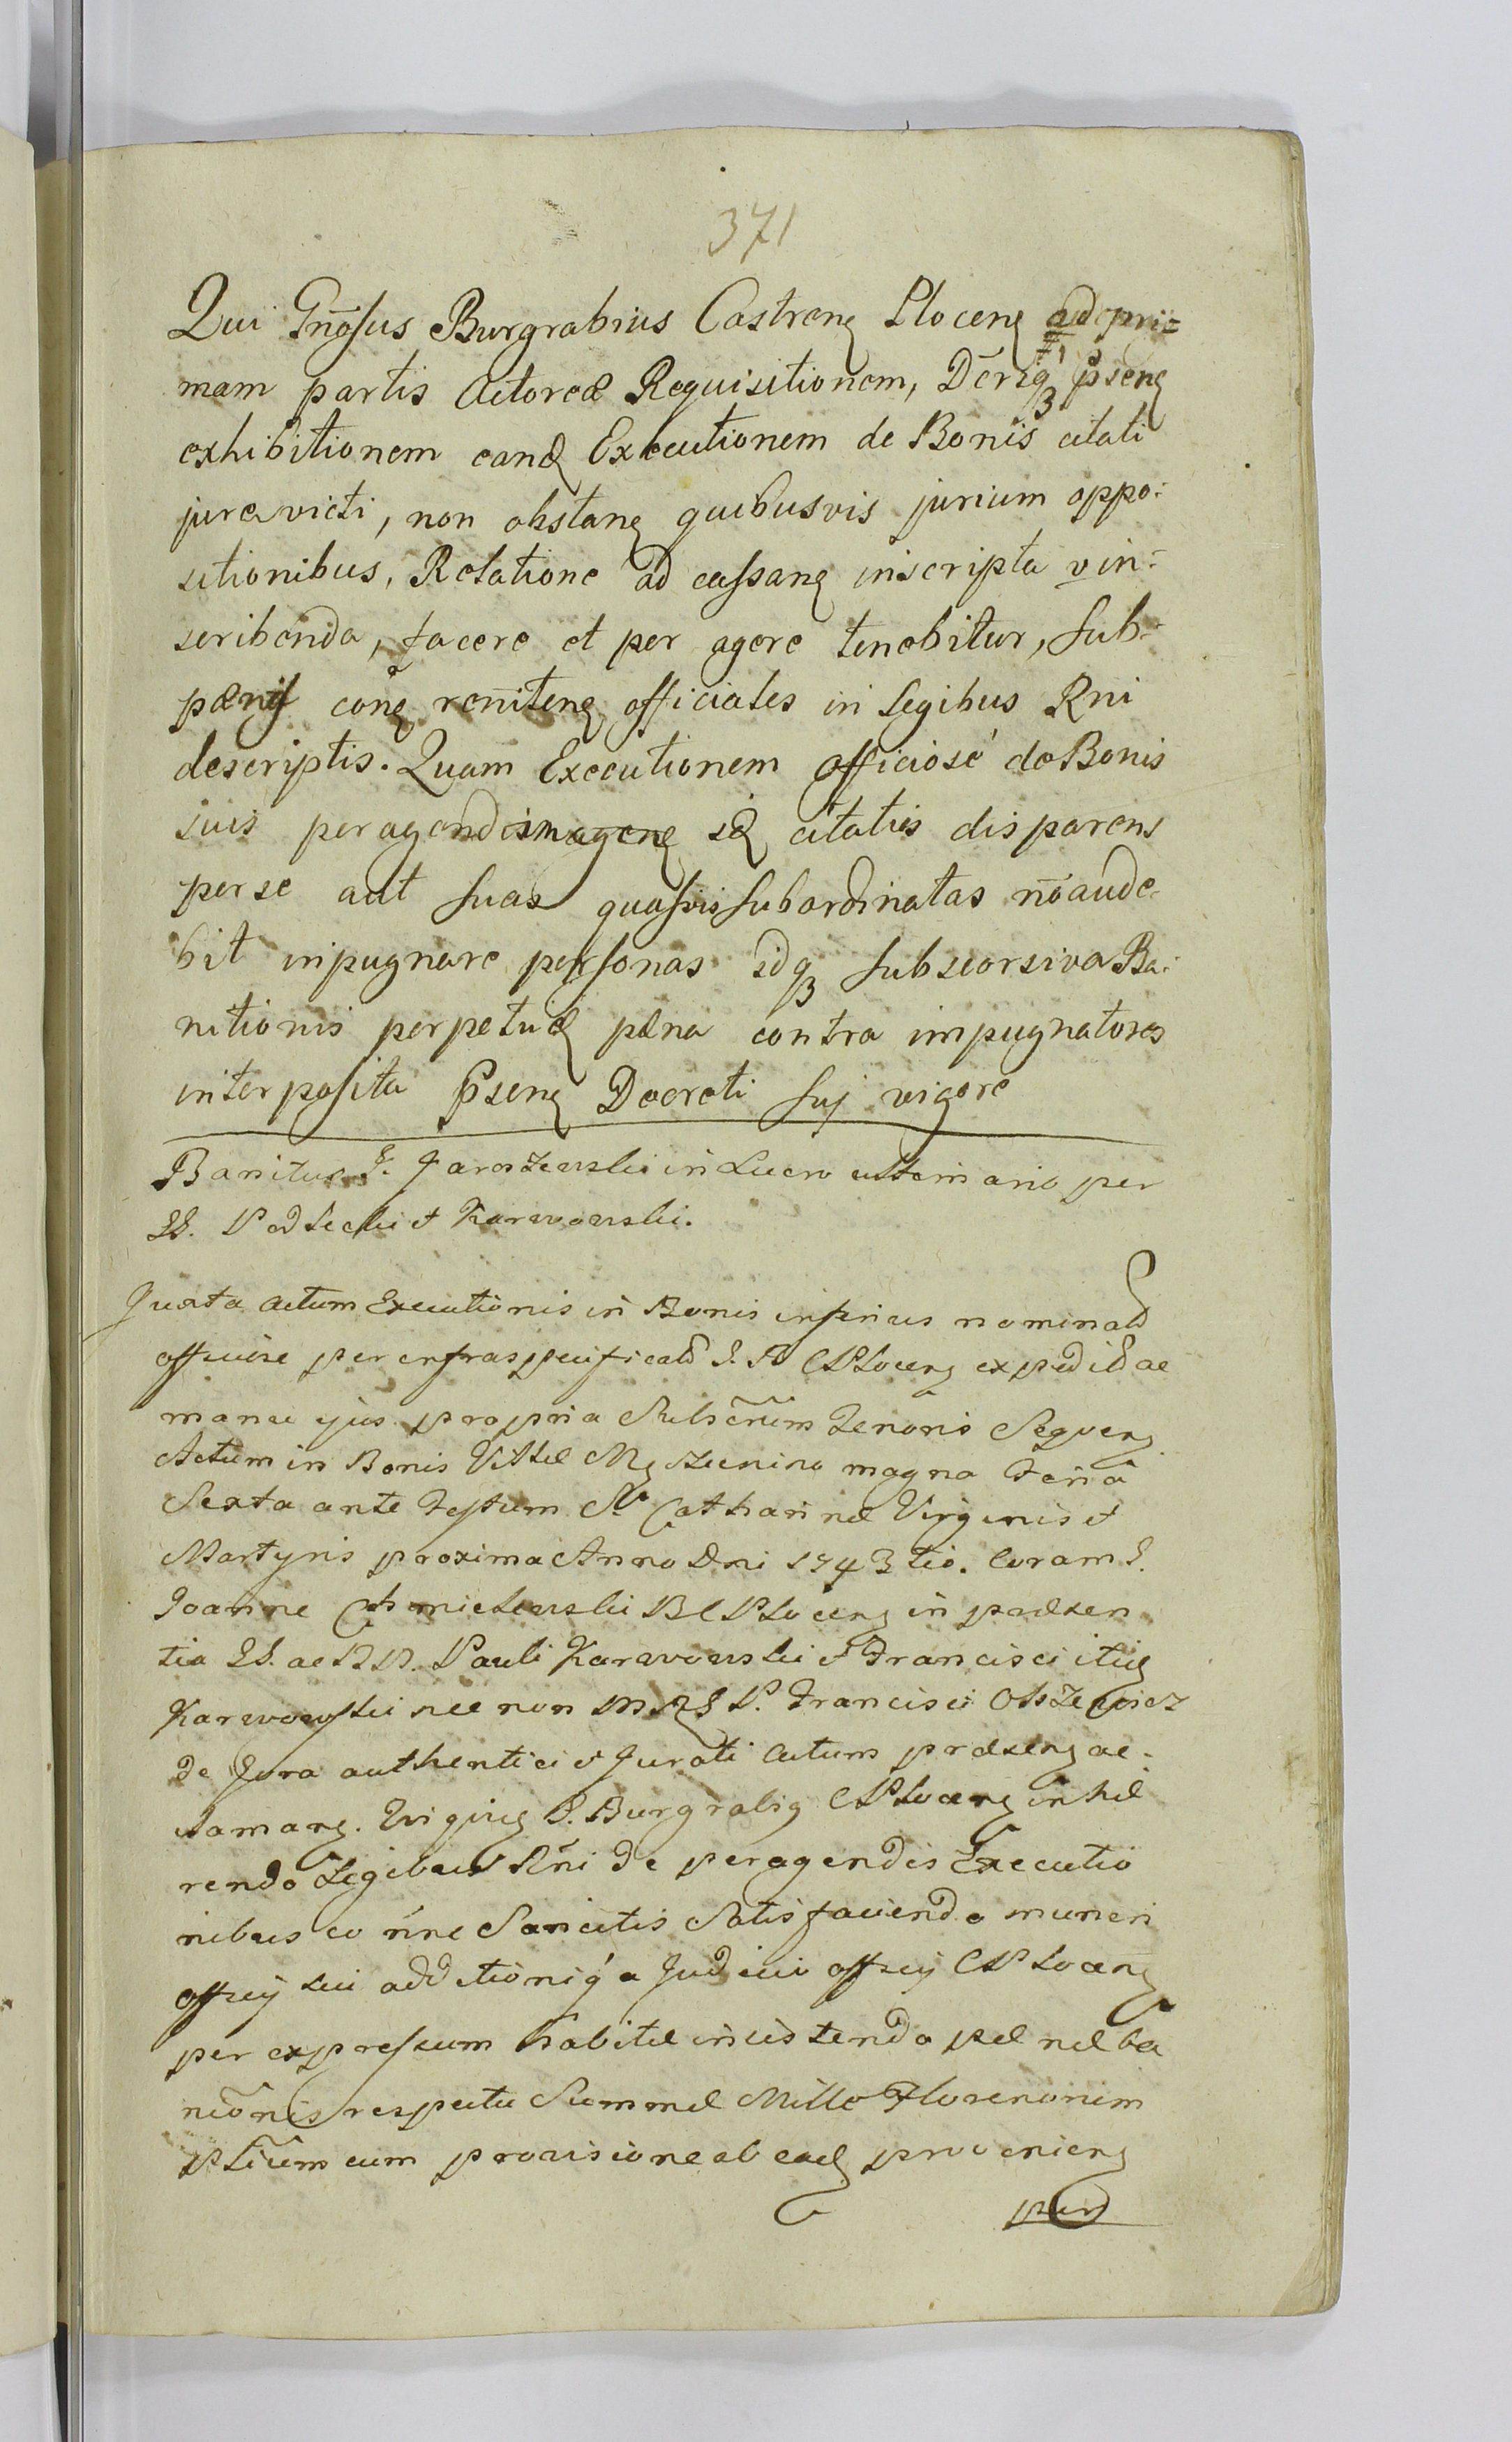 371
Qui Gnōsus Burgrabius Castrenȩ Plocenȩ ad pri=
mam partis Actoreæ Requisitionem, Dcrīqȝ p̄senȩ
exhibitionem eandȩ Executionem de Bonis citati
jure victi, non obstanȩ quibusvis jurium oppo:
sitionibus, Relatione ad cassanȩ inscripta v in:
scribenda, facere et per agere tenebitur, sub:
pænis conȩ reniitenȩ officiales in Legibus Rni
descriptis. Quam Executionem officiosé de Bonis
suis peragend citatus disparens
per se aut suas quasvis subordinatas nō aude
bit inpugnare personas idqȝ sub seorsiva Ba:
nitionis perpetuæ pæna contra impugnatores
interposita p̄senȩ Decreti sui vigore
Banitus G. Jaroszewski in Lucro per
GG. Podlecki et Karwowski.
Juxta actum Executionis in Bonis inferius nominatȩ
officiose per infraspecificatȩ G. B CPlocenȩ expeditȩ ac
manu ejus propria Subscriūm Tenoris Sequenȩ
Actum in Bonis Villæ Myszenino magna Feria
Sexta ante Festum Sæ Catharinæ Virginis et
Martyris proxima Anno Dni 1743tio. Coram G.
Joanne Chmielewski BCPlocenȩ in præsen
tia GG. ac NN. Pauli Karwowski et Francisci itidȩ
Karwowski nec non P. Francisci
de Jura authentici et Jurati actum præsenȩ ac-
clamanȩ. G. Burgrabiȩ CPlocenȩ inhæ
rendo Legibus Rni de peragendis Executio
nibus eo nne Sancitis Satisfaciendo muneri
officij sui addctionīq a Judicio officij CPlocenȩ
per expressum habitæ insistendo pænæ ba
niōnis respectu Summæ Mille Florenorum
pliūm cum provisione ab eadȩ provenienȩ